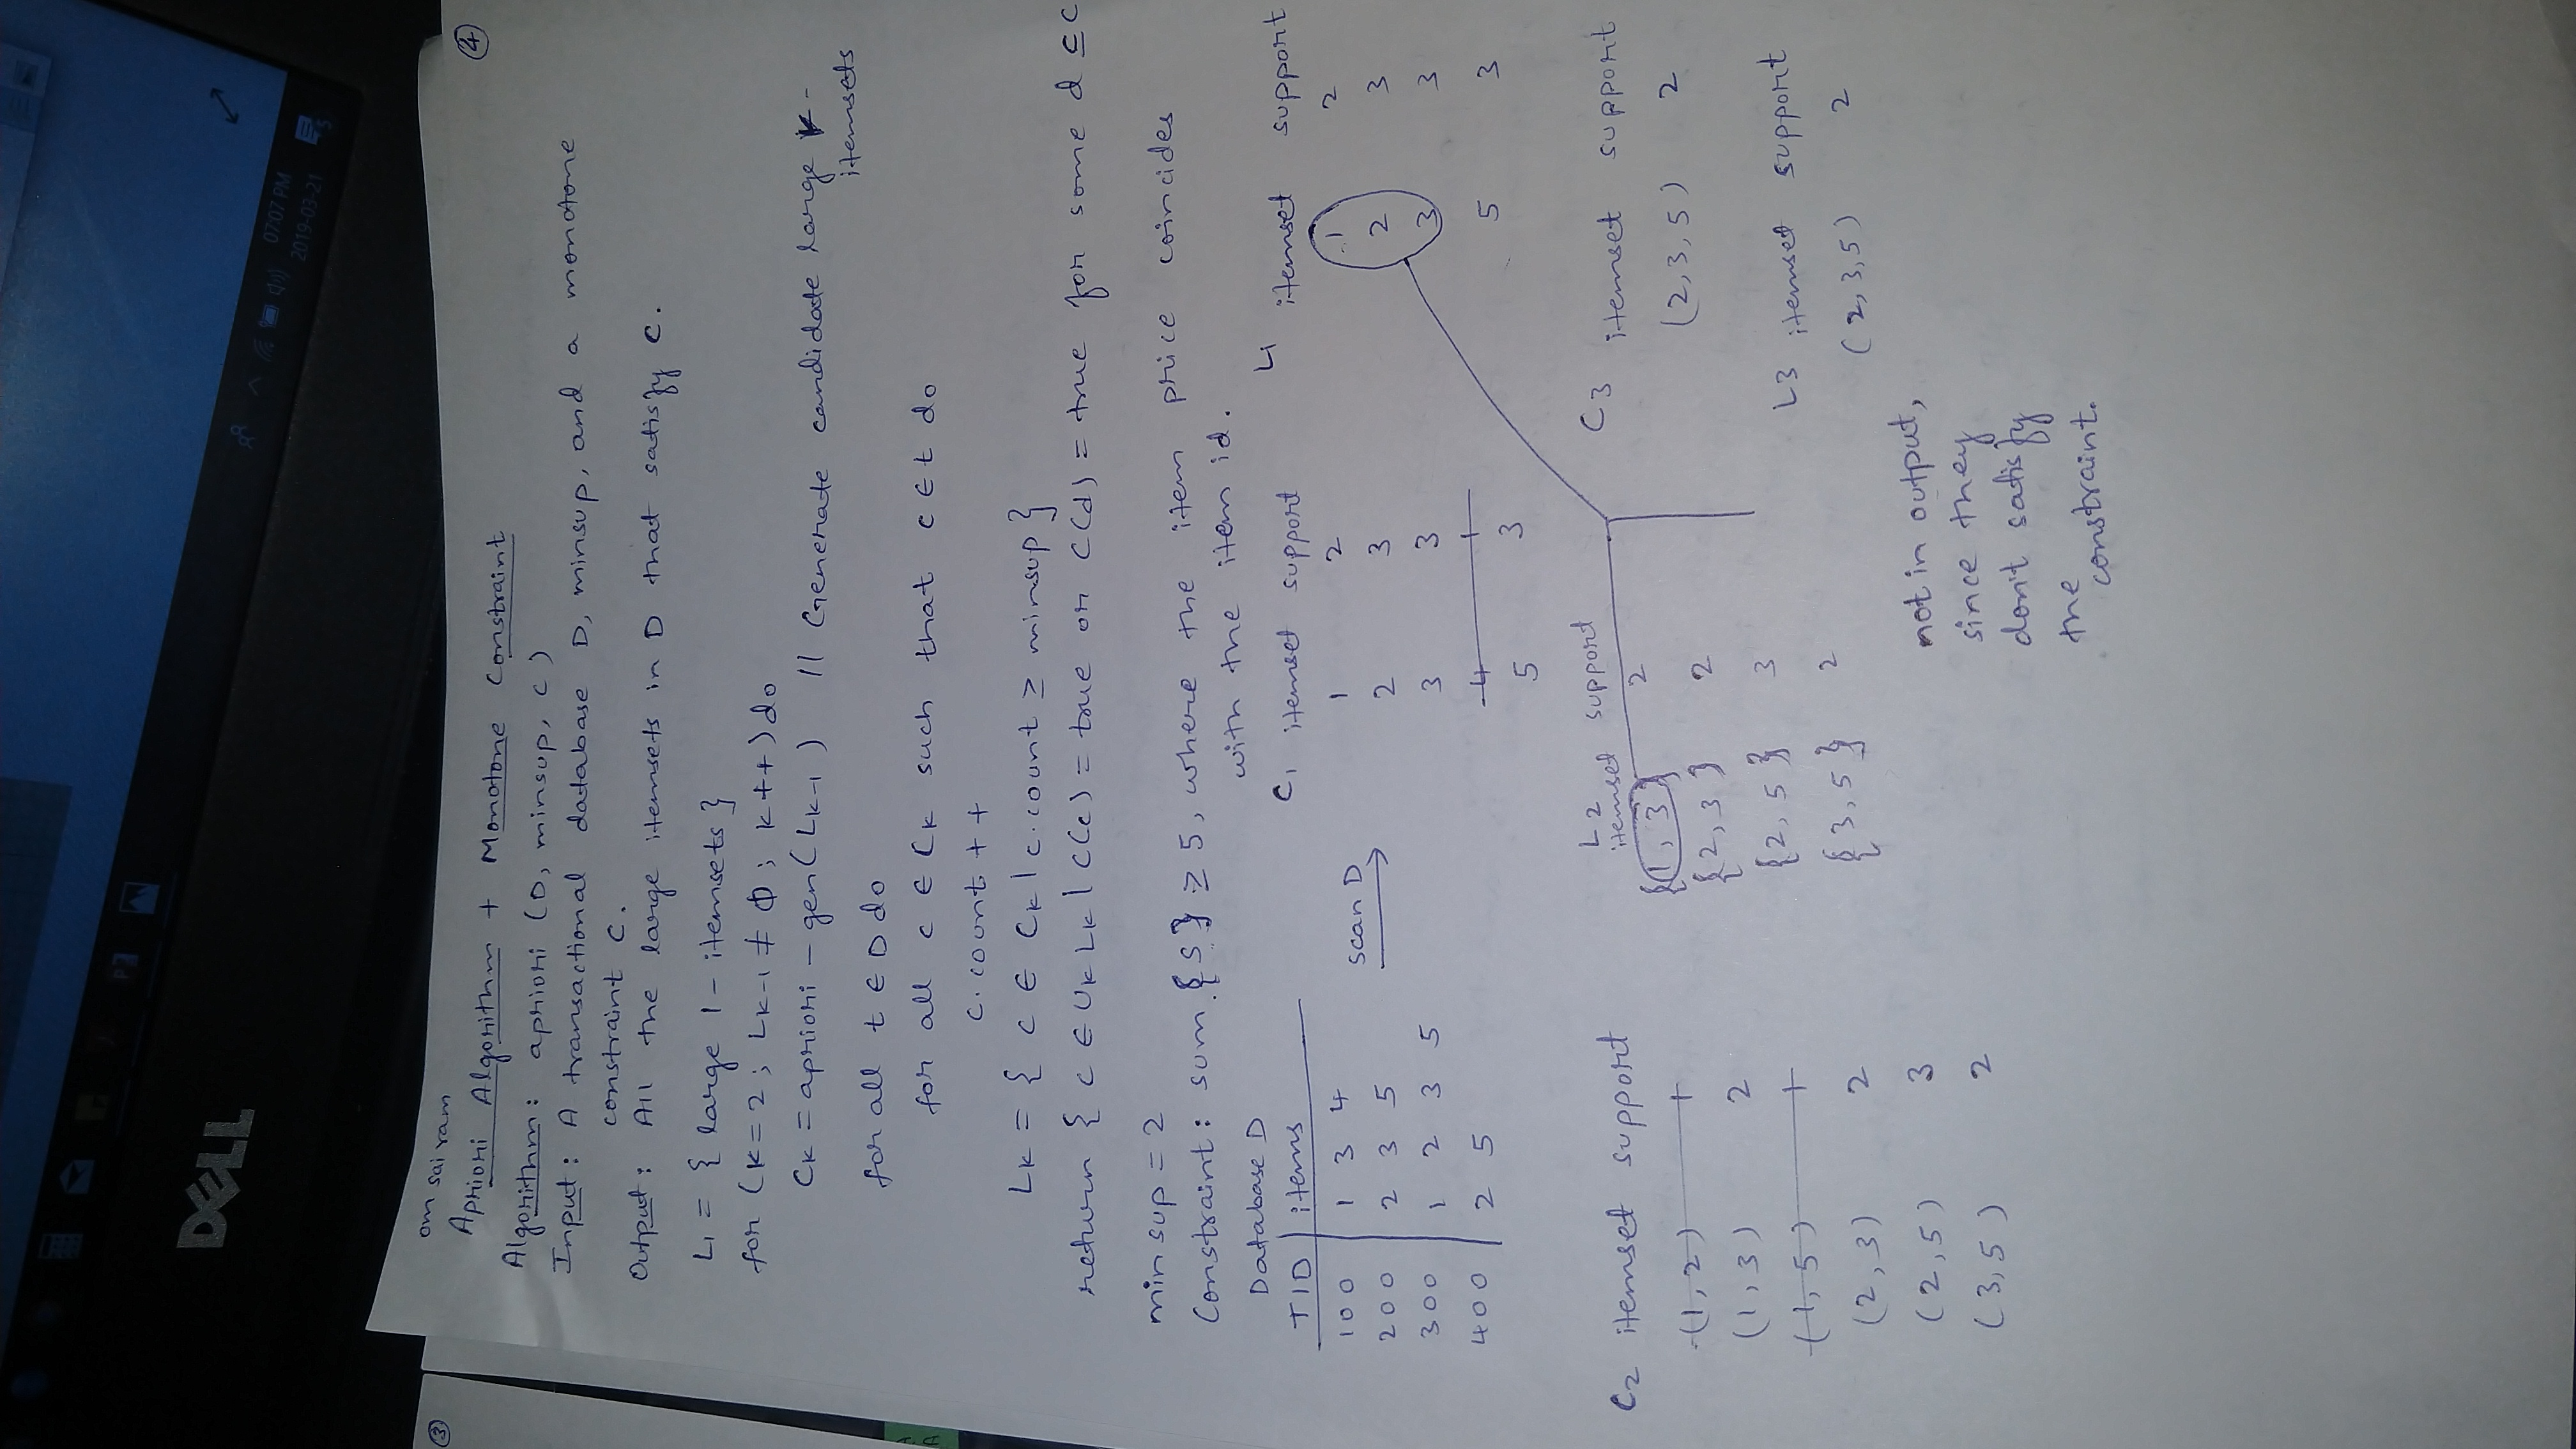 ④
om sai ram
Apriori Algorithm + Monotone Constraint
Algorithm: apriori (D, minsup, c)
Input: A transactional database D, minsup, and a monotone
constraint C.
Output: All the large itemsets in D that satisfy C.
L1 = { large 1 - itemsets }
for (k=2; Lk-1 ≠ Φ; k++) do
Ck = apriori - gen(Lk-1) // Generate candidate large k-
itemsets
for all t ∈ D do
for all c ∈ Ck such that c ∈ t do
c.count ++
Lk = { c ∈ Ck | c.count ≥ minsup }
return { c ∈ Uk Lk | C(c) = true or C(d) = true for some d ⊆ c
minsup = 2
Constraint: sum {S} ≥ 5, where the item price coincides
with the item id.
Database D
TID items
100 1 3 4
200 2 3 5
300 1 2 3 5
400 2 5
scan D
C1 itemset support
1 2
2 3
3 3
4 1
5 3
L1 itemset support
1 2
2 3
3 3
5 3
C2 itemset support
(1, 2) 1
(1, 3) 2
(1, 5) 1
(2, 3) 2
(2, 5) 3
(3, 5) 2
L2
itemset support
{1, 3} 2
{2, 3} 2
{2, 5} 3
{3, 5} 2
C3 itemset support
(2, 3, 5) 2
L3 itemset support
(2, 3, 5) 2
not in output,
since they
don't satisfy
the
constraint.
③
DELL
07:07 PM
2019-03-21